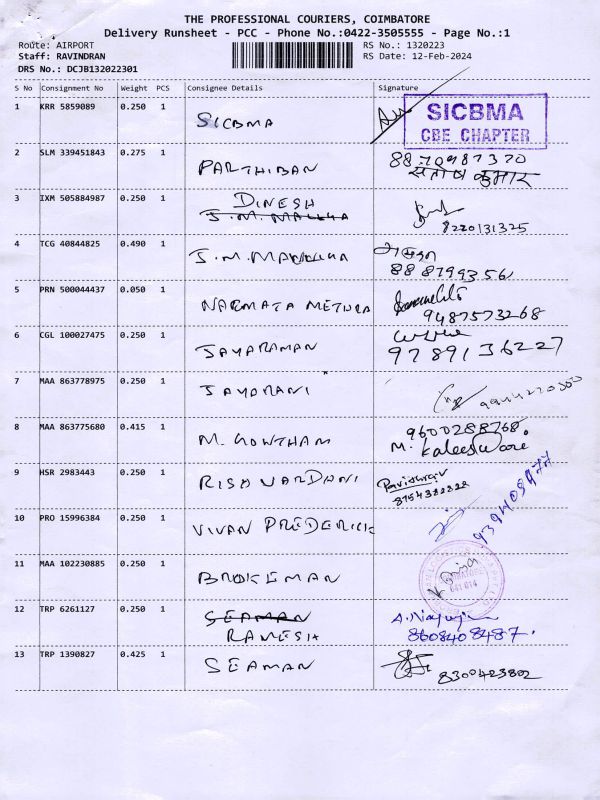 THE PROFESSIONAL COURIERS, COIMBATORE
Delivery Runsheet - PCC - Phone No.:0422-3505555 - Page No.:1
Route: AIRPORT RS No.: 1320223
Staff: RAVINDRAN RS Date: 12-Feb-2024
DRS No.: DCJB132022301
S No Consignment No Weight PCS Consignee Details Signature
1 KRR 5859089 0.250 1 SICBMA SICBMA
CBE CHAPTER
2 SLM 339451843 0.275 1 PARTHIBAN 8870987370
संतोष कुमार
3 IXM 505884987 0.250 1 DINESH
8220131325
4 TCG 40844825 0.490 1 J.M.
888799356
5 PRN 500044437 0.050 1 NARMATA METURA
9487573268
6 CGL 100027475 0.250 1 JAYARAMAN
9789136227
7 MAA 863778975 0.250 1 JAYARANI
8 MAA 863775680 0.415 1 M. GOWTHAM 9600288768.
M. Kaleeswari
9 HSR 2983443 0.250 1 RISHVARDHNI
8754382828
10 PRO 15996384 0.250 1 VIVAN FREDERICK
11 MAA 102230885 0.250 1 BROKEMAN
641 014
12 TRP 6261127 0.250 1 SEAMAN
RAMESH
8608408487.
13 TRP 1390827 0.425 1 SEAMAN
8300423802